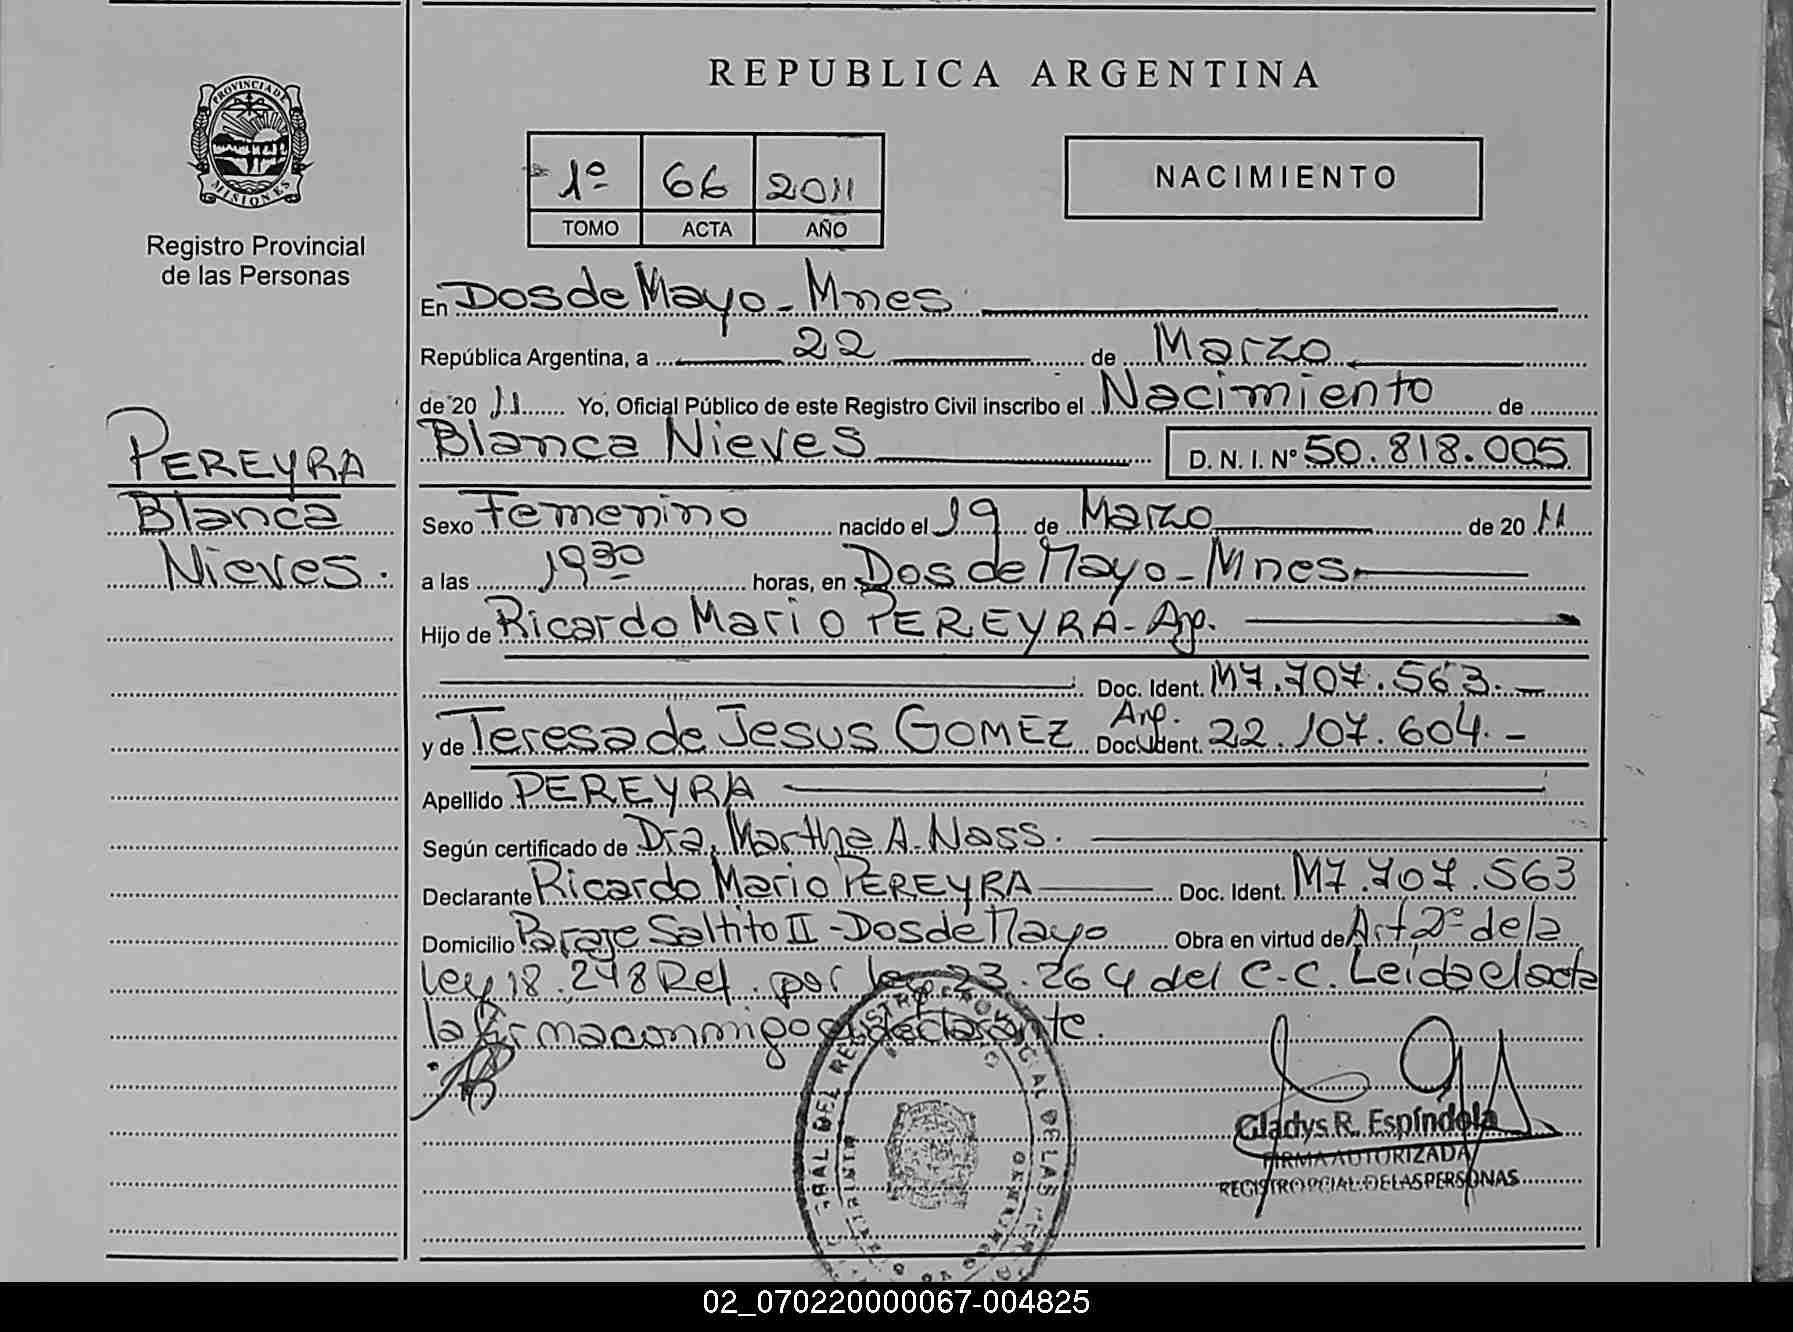 REPUBLICA ARGENTINA
PROVINCIA DE
MISIONES
Registro Provincial
de las Personas
1º 66 2011
TOMO ACTA AÑO
NACIMIENTO
PEREYRA
Blanca
Nieves.
En Dos de Mayo - Mnes
República Argentina, a 22 de Marzo
de 20 11 Yo, Oficial Público de este Registro Civil inscribo el Nacimiento de
Blanca Nieves D. N. I. Nº 50.818.005
Sexo Femenino nacido el 19 de Marzo de 20 11
a las 19 30 horas, en Dos de Mayo - Mnes.
Hijo de Ricardo Mario PEREYRA - Arg.
Doc. Ident. M7.707.563. -
y de Teresa de Jesus GOMEZ Arg. Doc. Ident. 22.107.604. -
Apellido PEREYRA
Según certificado de Dra. Martha A. Nass.
Declarante Ricardo Mario PEREYRA Doc. Ident. M7.707.563
Domicilio Paraje Saltito II - Dos de Mayo Obra en virtud de Art 2º de la
Ley 18.248 Ref. por ley 23.264 del C.C. Leida el acta
la firma conmigo el declarante.
Gladys R. Espíndola
FIRMA AUTORIZADA
REGISTRO PCIAL. DE LAS PERSONAS
02_070220000067-004825